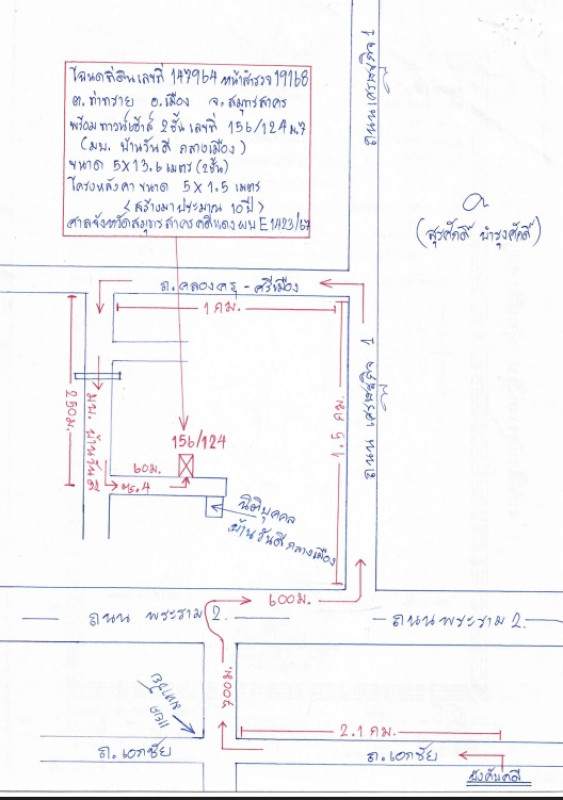 โฉนดที่ดินเลขที่ 147964 หน้าสำรวจ 19168
ต.ท่าทราย อ.เมือง จ.สมุทรสาคร
พร้อมทาวน์เฮ้าส์ 2 ชั้น เลขที่ 156/124 ม.7
(มบ. บ้านวันดี กลางเมือง)
ขนาด 5X13.6 เมตร (2ชั้น)
โครงหลังคา ขนาด 5X1.5 เมตร
(สร้างมาประมาณ 10ปี)
ศาลจังหวัดสมุทรสาคร คดีแดง ผบ E1423/67
ถนนเศรษฐกิจ 1
(สุรศักดิ์ บำรุงศักดิ์)
ถ.คลองครุ - ศรีเมือง
1 กม.
250ม.
มบ. บ้านวันดี
1.5 กม.
ถนน เศรษฐกิจ 1
156/124
60ม.
ซ.4
นิติบุคคล
บ้านวันดี กลางเมือง
600ม.
ถนน พระราม 2.
ถนนพระราม 2.
200ม.
2.1 กม.
ถ.เอกชัย
ถ.เอกชัย
บังคับคดี